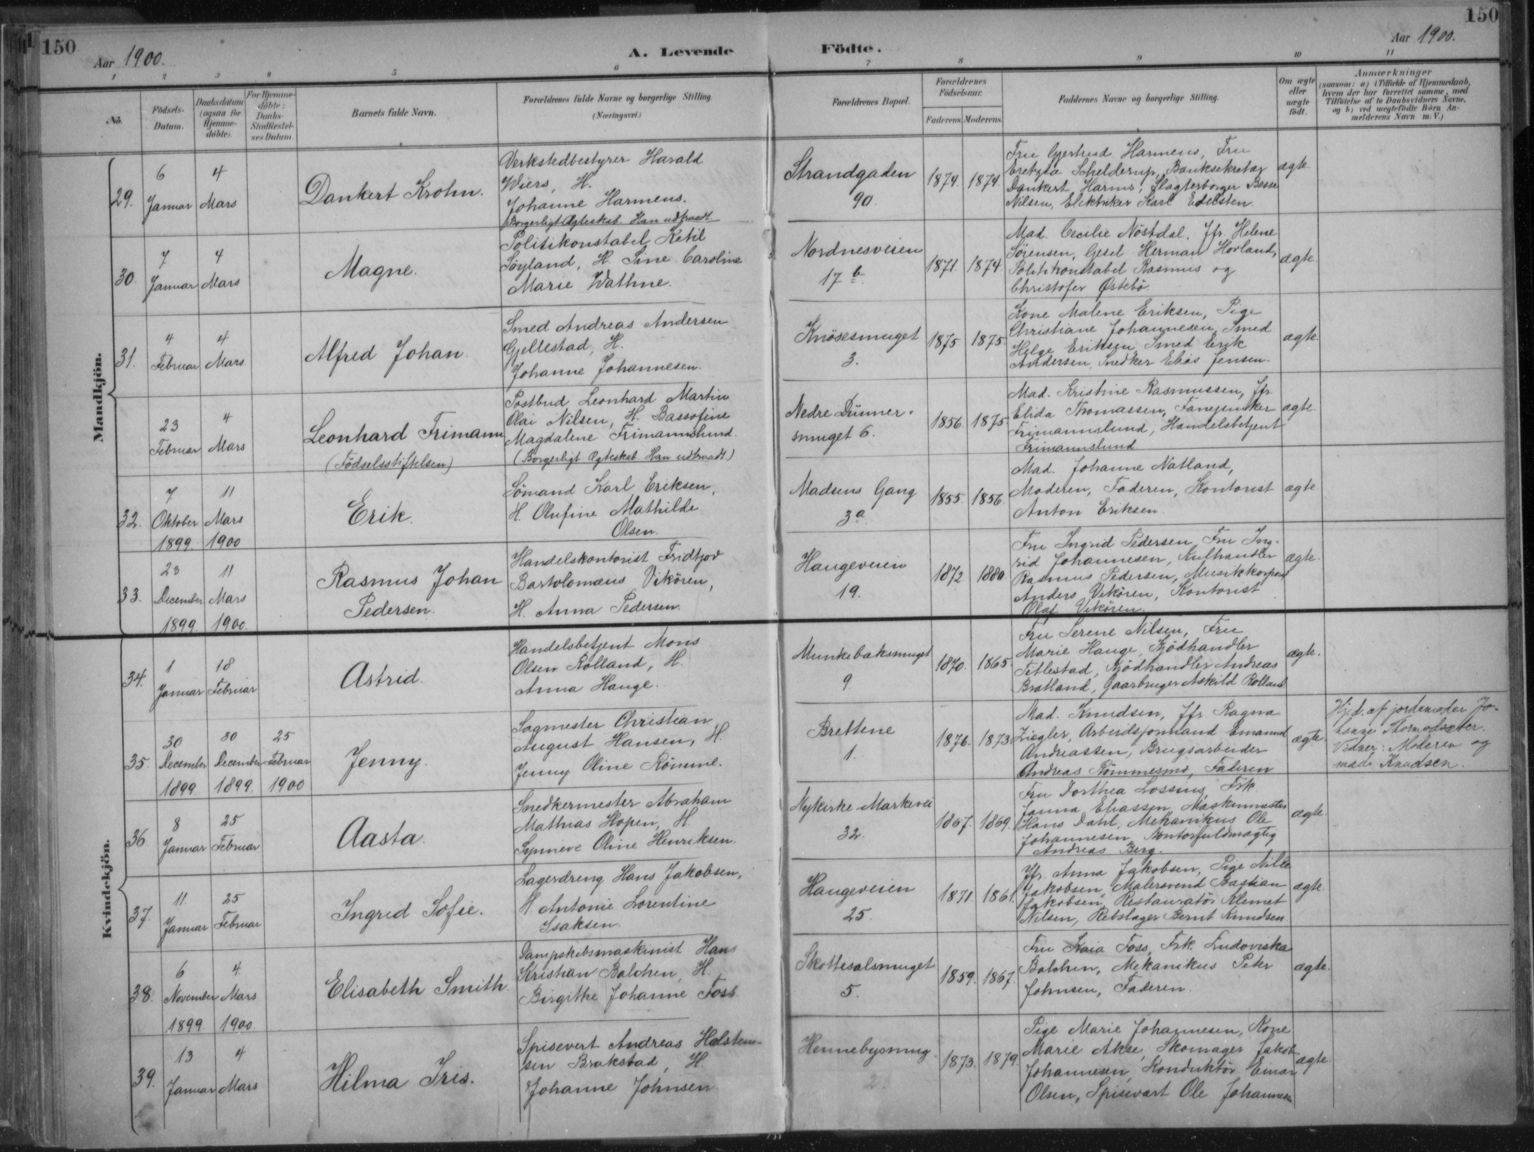 150
Aar 1900.
A. Levende Födte.
Aar 1900.
150
1 2 3 4 5 6 7 8 9 10 11
No.
Födsels-Datum.
Daabsdatum (ogsaa for Hjemme-døbte).
For Hjemme-døbte: Daabs-Stadfæstel-ses Datum.
Barnets fulde Navn.
Forældrenes fulde Navne og borgerlige Stilling.
(Næringsvei)
Forældrenes Bopæl.
Forældrenes Födselsaar.
Faderens. Moderens.
Faddernes Navne og borgerlige Stilling.
Om ægte eller uægte födt.
Anmærkninger
(saasom: a) i Tilfælde af Hjemmedaab, hvem der har forrettet samme, med Tilföielse af to Daabsvidners Navne, og b) ved uægtefødte Börn An-melderens Navn m. V.)
Mandkjön.
29.
6 Januar
4 Mars
Dankert Krohn.
Verkstedbestyrer Harald
Wiers, H.
Johanne Harmens.
Borgerligt Ægteskab Han udtraadt
Strandgaden
90
1874. 1874
Fru Gjertrud Harmens, Fru
Schelderup, Banksekretær
Dankert Harms, Slagterborger
Nilsen, Elektriker Karl Edelsten
ægte.
30.
7 Januar
4 Mars
Magne.
Politikonstabel Ketil
Söyland, H. Sine Caroline
Marie Wathne.
Nordnesveien
17 b.
1871. 1874.
Mad. Cecilie Nöstdal, Jfr. Helene
Sörensen, Gjesel Herman Hovland,
Politikonstabel Rasmus og
Christofer Østebö
ægte
31.
4 Februar
4 Mars
Alfred Johan.
Smed Andreas Andersen
Gjellestad, H.
Johanne Johannesen.
Knösesmuget
3.
1875 1875
Kone Malene Eriksen, Pige
Christiane Johannesen, Smed
Helge Eriksen, Smed Erik
Andersen, Snedker Elias Jensen.
ægte.
23 Februar
4 Mars
Leonhard Frimann
(Födselsstiftelsen)
Postbud Leonhard Martin
Olai Nilsen, H. Bassofine
Magdalene Frimannslund.
(Borgerligt Ægteskab Han udtraadt)
Nedre Dünner-
smuget 6.
1856. 1875.
Mad. Kristine Rasmussen, Jfr.
Elida Thomassen, Fanejunker
Frimannslund, Handelsbetjent
Frimannslund
ægte.
32.
7 Oktober 1899
11 Mars 1900
Erik.
Sömand Karl Eriksen,
H. Olufine Mathilde
Olsen.
Madsens Gang
3 a.
1855 1856.
Mad. Johanne Natland,
Moderen, Faderen, Kontorist
Anton Eriksen.
ægte
33.
23 December 1899
11 Mars 1900.
Rasmus Johan
Pedersen.
Handelskontorist Fridtjov
Bartolomæus Vikören,
H. Anna Pedersen.
Haugeveien
19.
1872 1880
Fru Ingrid Pedersen, Fru Ing-
rid Johannesen,
Rasmus Pedersen, Musikkorporal
Anders Vikören, Kontorist
Olaf Vikören.
ægte.
Kvindekjön.
34.
1 Januar
18 Februar
Astrid.
Handelsbetjent Mons
Olsen Rolland, H.
Anna Hauge.
Munkebæksmuget
9
1870. 1865.
Fru Serene Nilsen, Fru
Marie Hauge, Kjödhandler
Titlestad, Kjödhandler Andreas
Bratland, Gaarbruger Askild Rolland
ægte.
35
30 December 1899
30 December 1899.
25 Februar 1900
Jenny.
Sagmester Christian
August Hansen, H.
Jenny Oline Römme.
Brettene
1.
1876. 1873.
Mad. Knudsen, Jfr. Ragna
Ziegler, Arbeidsformand Emanuel
Andreassen, Brugsarbeider
Andreas, Faderen
ægte.
Hjd. af jordemoder Jo-
Vidner: Moderen og
mad. Knudsen.
36
8 Januar
25 Februar
Aasta.
Snedkermester Abraham
Mathias Hopen, H.
Synneve Oline Henriksen.
Nykirke Markevei
32.
1867. 1869.
Fru Dorthea Lossius, Frk.
Janna Eliassen, Maskinmester
Hans Dahl, Mekanikus Ole
Johannesen, Kontorfuldmægtig
Andreas Berg.
ægte.
37.
11 Januar
25 Februar
Ingrid Sofie.
Lagerdreng Hans Jakobsen,
H. Antonie Lorentine
Isaksen
Haugeveien
25.
1871. 1861.
Jfr. Anna Jakobsen, Pige Nille
Jakobsen, Malersvend Bastian
Jakobsen, Restauratør Klemet
Nilsen, Rebslager Bernt Knudsen
ægte.
38.
6 November 1899
4 Mars 1900
Elisabeth Smith
Dampskibsmaskinist Hans
Kristian Balchen, H.
Birgitte Johanne Foss
Skottesalsmuget
5.
1859. 1867.
Fru Kaia Foss, Frk. Ludoviska
Balchen, Mekanikus Peter
Johnsen, Faderen.
ægte.
39.
13 Januar
4 Mars
Hilma Iris.
Spisevert Andreas Halstein-
sen Brakstad, H.
Johanne Johnsen
Hennebysmug
2.
1873. 1879.
Pige Marie Johannesen, Kone
Marie Akse, Skomager Jakob
Johannesen, Konduktör Einar
Olsen, Spisevært Ole Johannesen
ægte